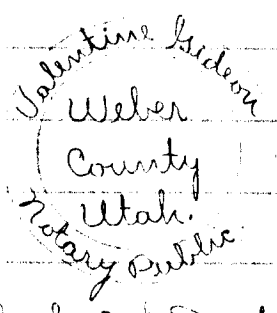 Valentine Gideon
Weber
County
Utah.
Notary Public